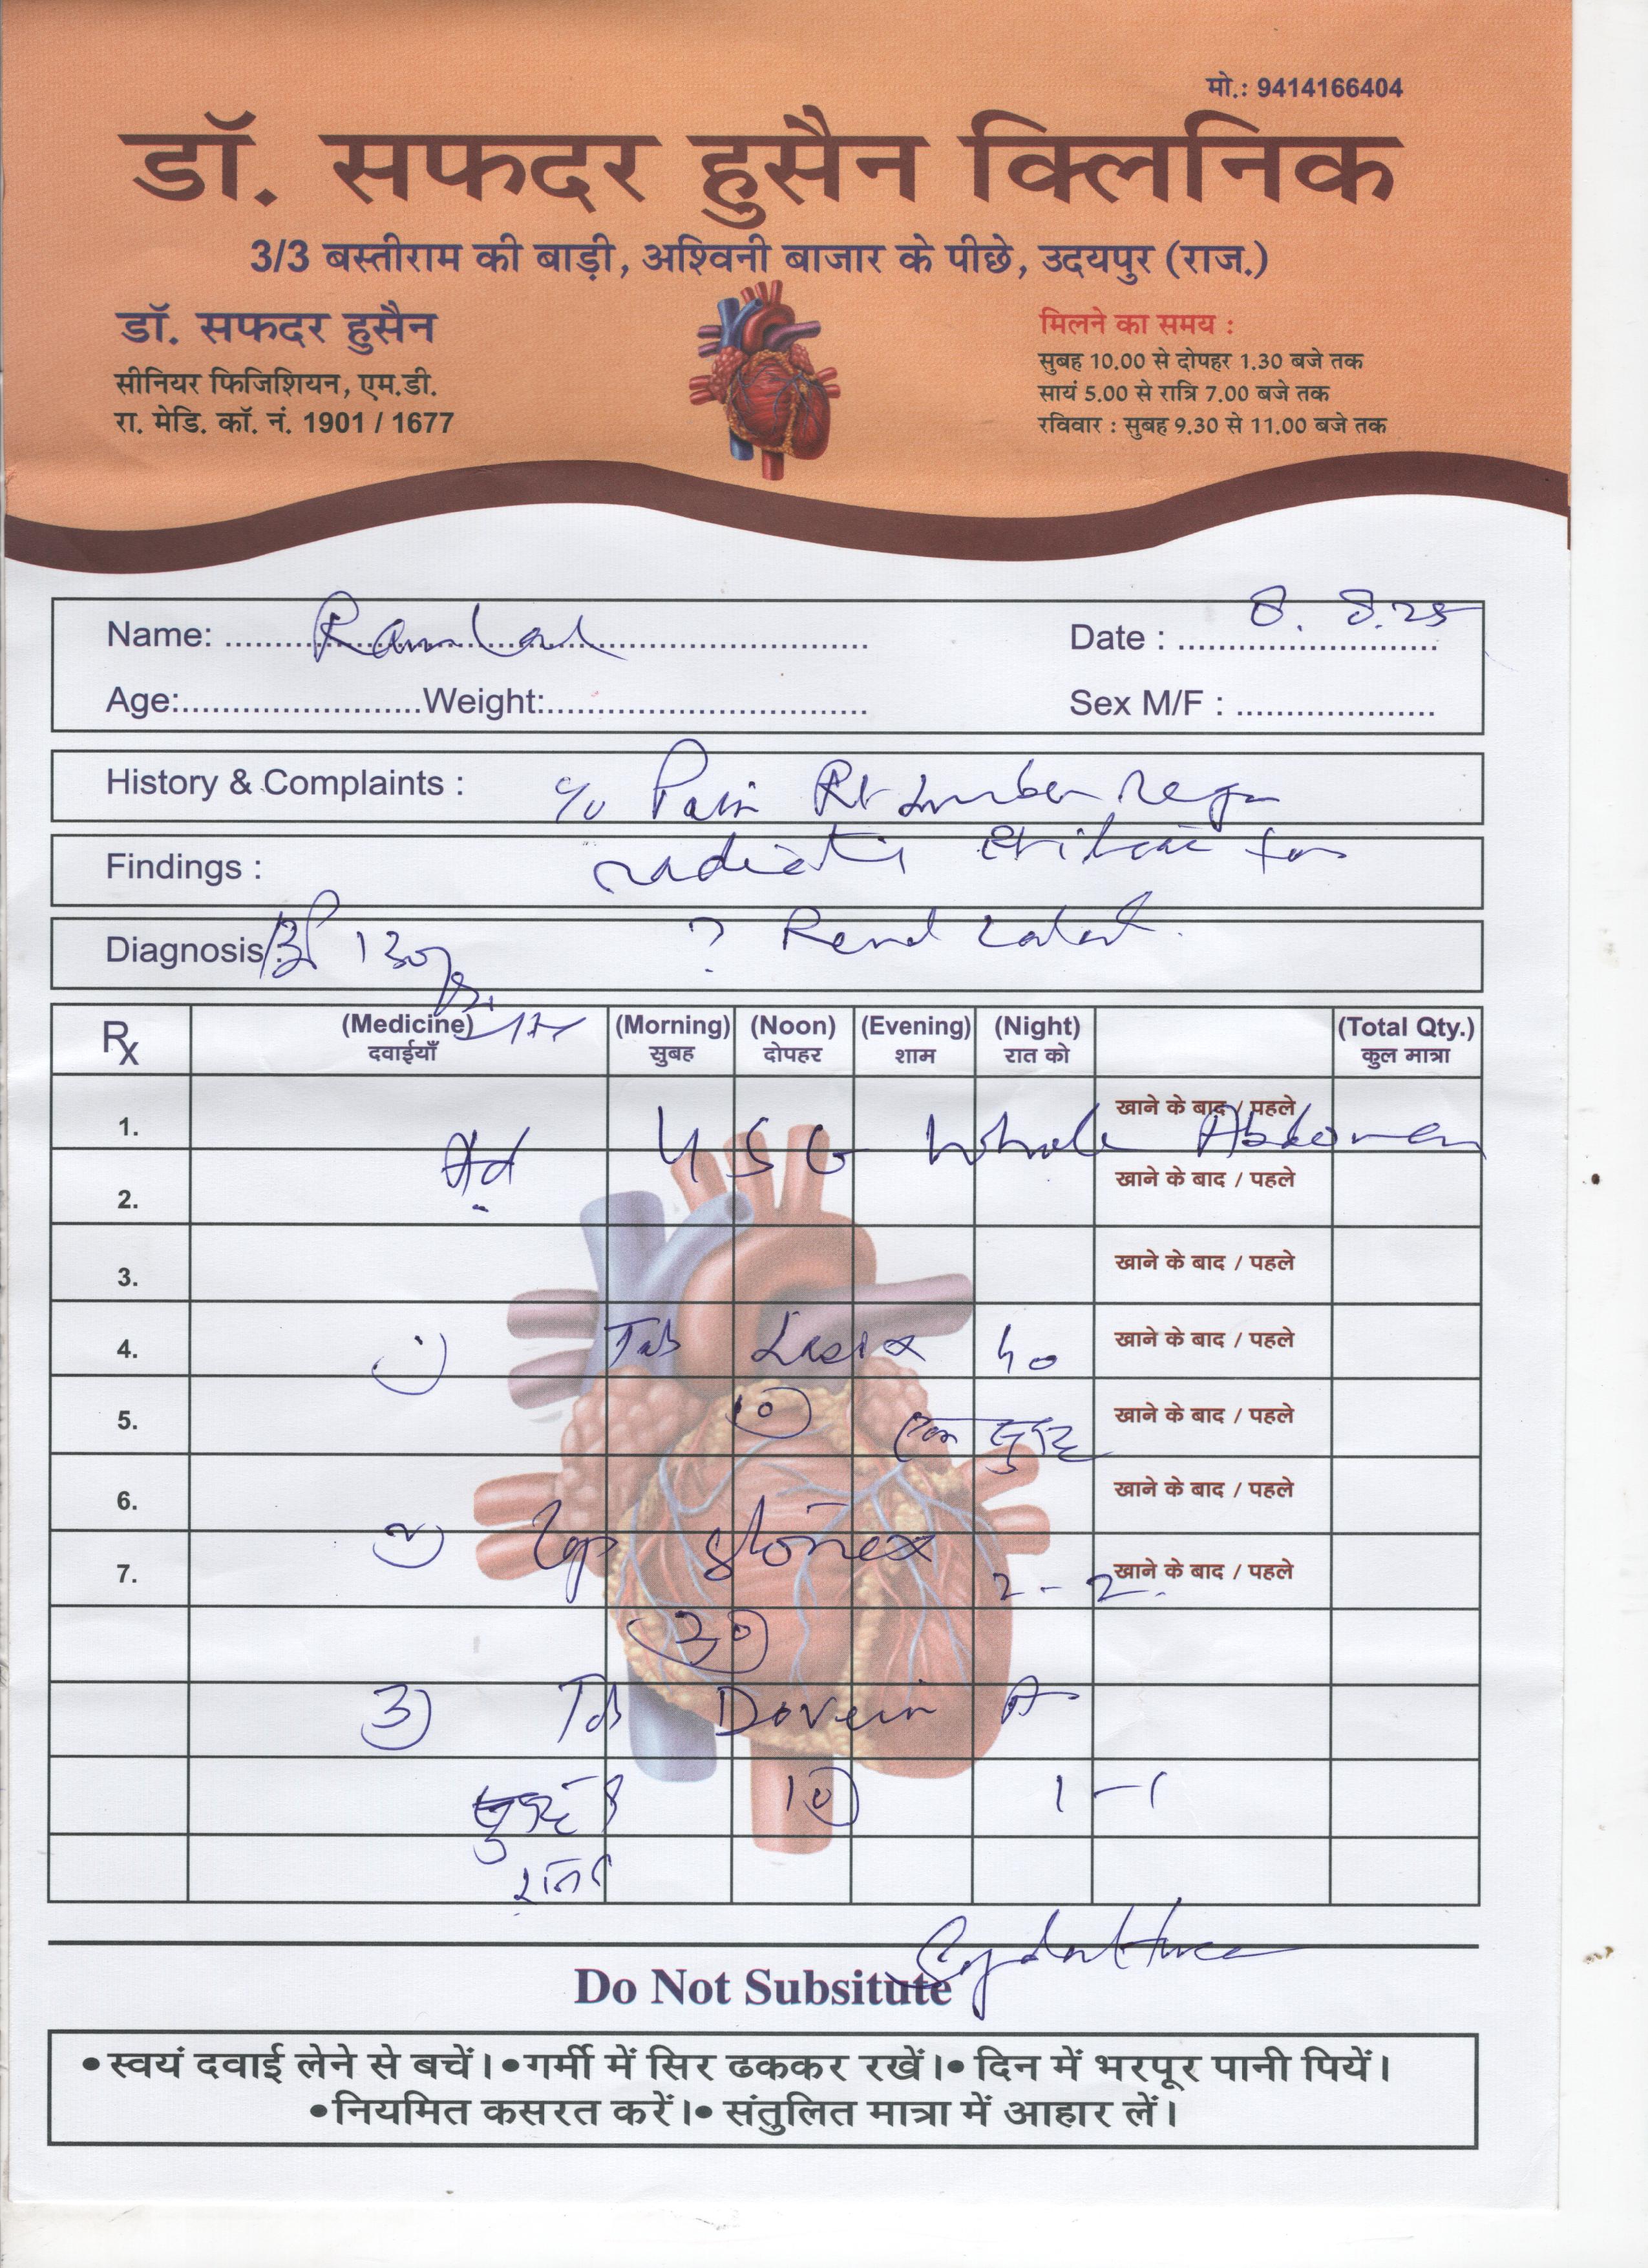 मो.: 9414166404
डॉ. सफदर हुसैन क्लिनिक
3/3 बस्तीराम की बाड़ी, अश्विनी बाजार के पीछे, उदयपुर (राज.)
डॉ. सफदर हुसैन
सीनियर फिजिशियन, एम.डी.
रा. मेडि. कॉ. नं. 1901 / 1677
मिलने का समय :
सुबह 10.00 से दोपहर 1.30 बजे तक
सायं 5.00 से रात्रि 7.00 बजे तक
रविवार : सुबह 9.30 से 11.00 बजे तक
Name: Date : 8. 8.25
Age: Weight: Sex M/F :
History & Complaints : c/o Pain Rt
Findings :
Diagnosis : ? Renal
Rx (Medicine) (Morning) (Noon) (Evening) (Night) (Total Qty.)
दवाईयाँ सुबह दोपहर शाम रात को कुल मात्रा
1. खाने के बाद / पहले
Ad USG Whole Abdomen
2. खाने के बाद / पहले
3. खाने के बाद / पहले
4. 1) Tab Lasix 40 खाने के बाद / पहले
5. 10 एक सुबह खाने के बाद / पहले
6. खाने के बाद / पहले
2) Cap Stonex
7. 2 - 2 खाने के बाद / पहले
30
3) Tab A
सुबह 10 1 - 1
शाम
Do Not Subsitute
•स्वयं दवाई लेने से बचें।•गर्मी में सिर ढककर रखें।• दिन में भरपूर पानी पियें।
•नियमित कसरत करें।• संतुलित मात्रा में आहार लें।